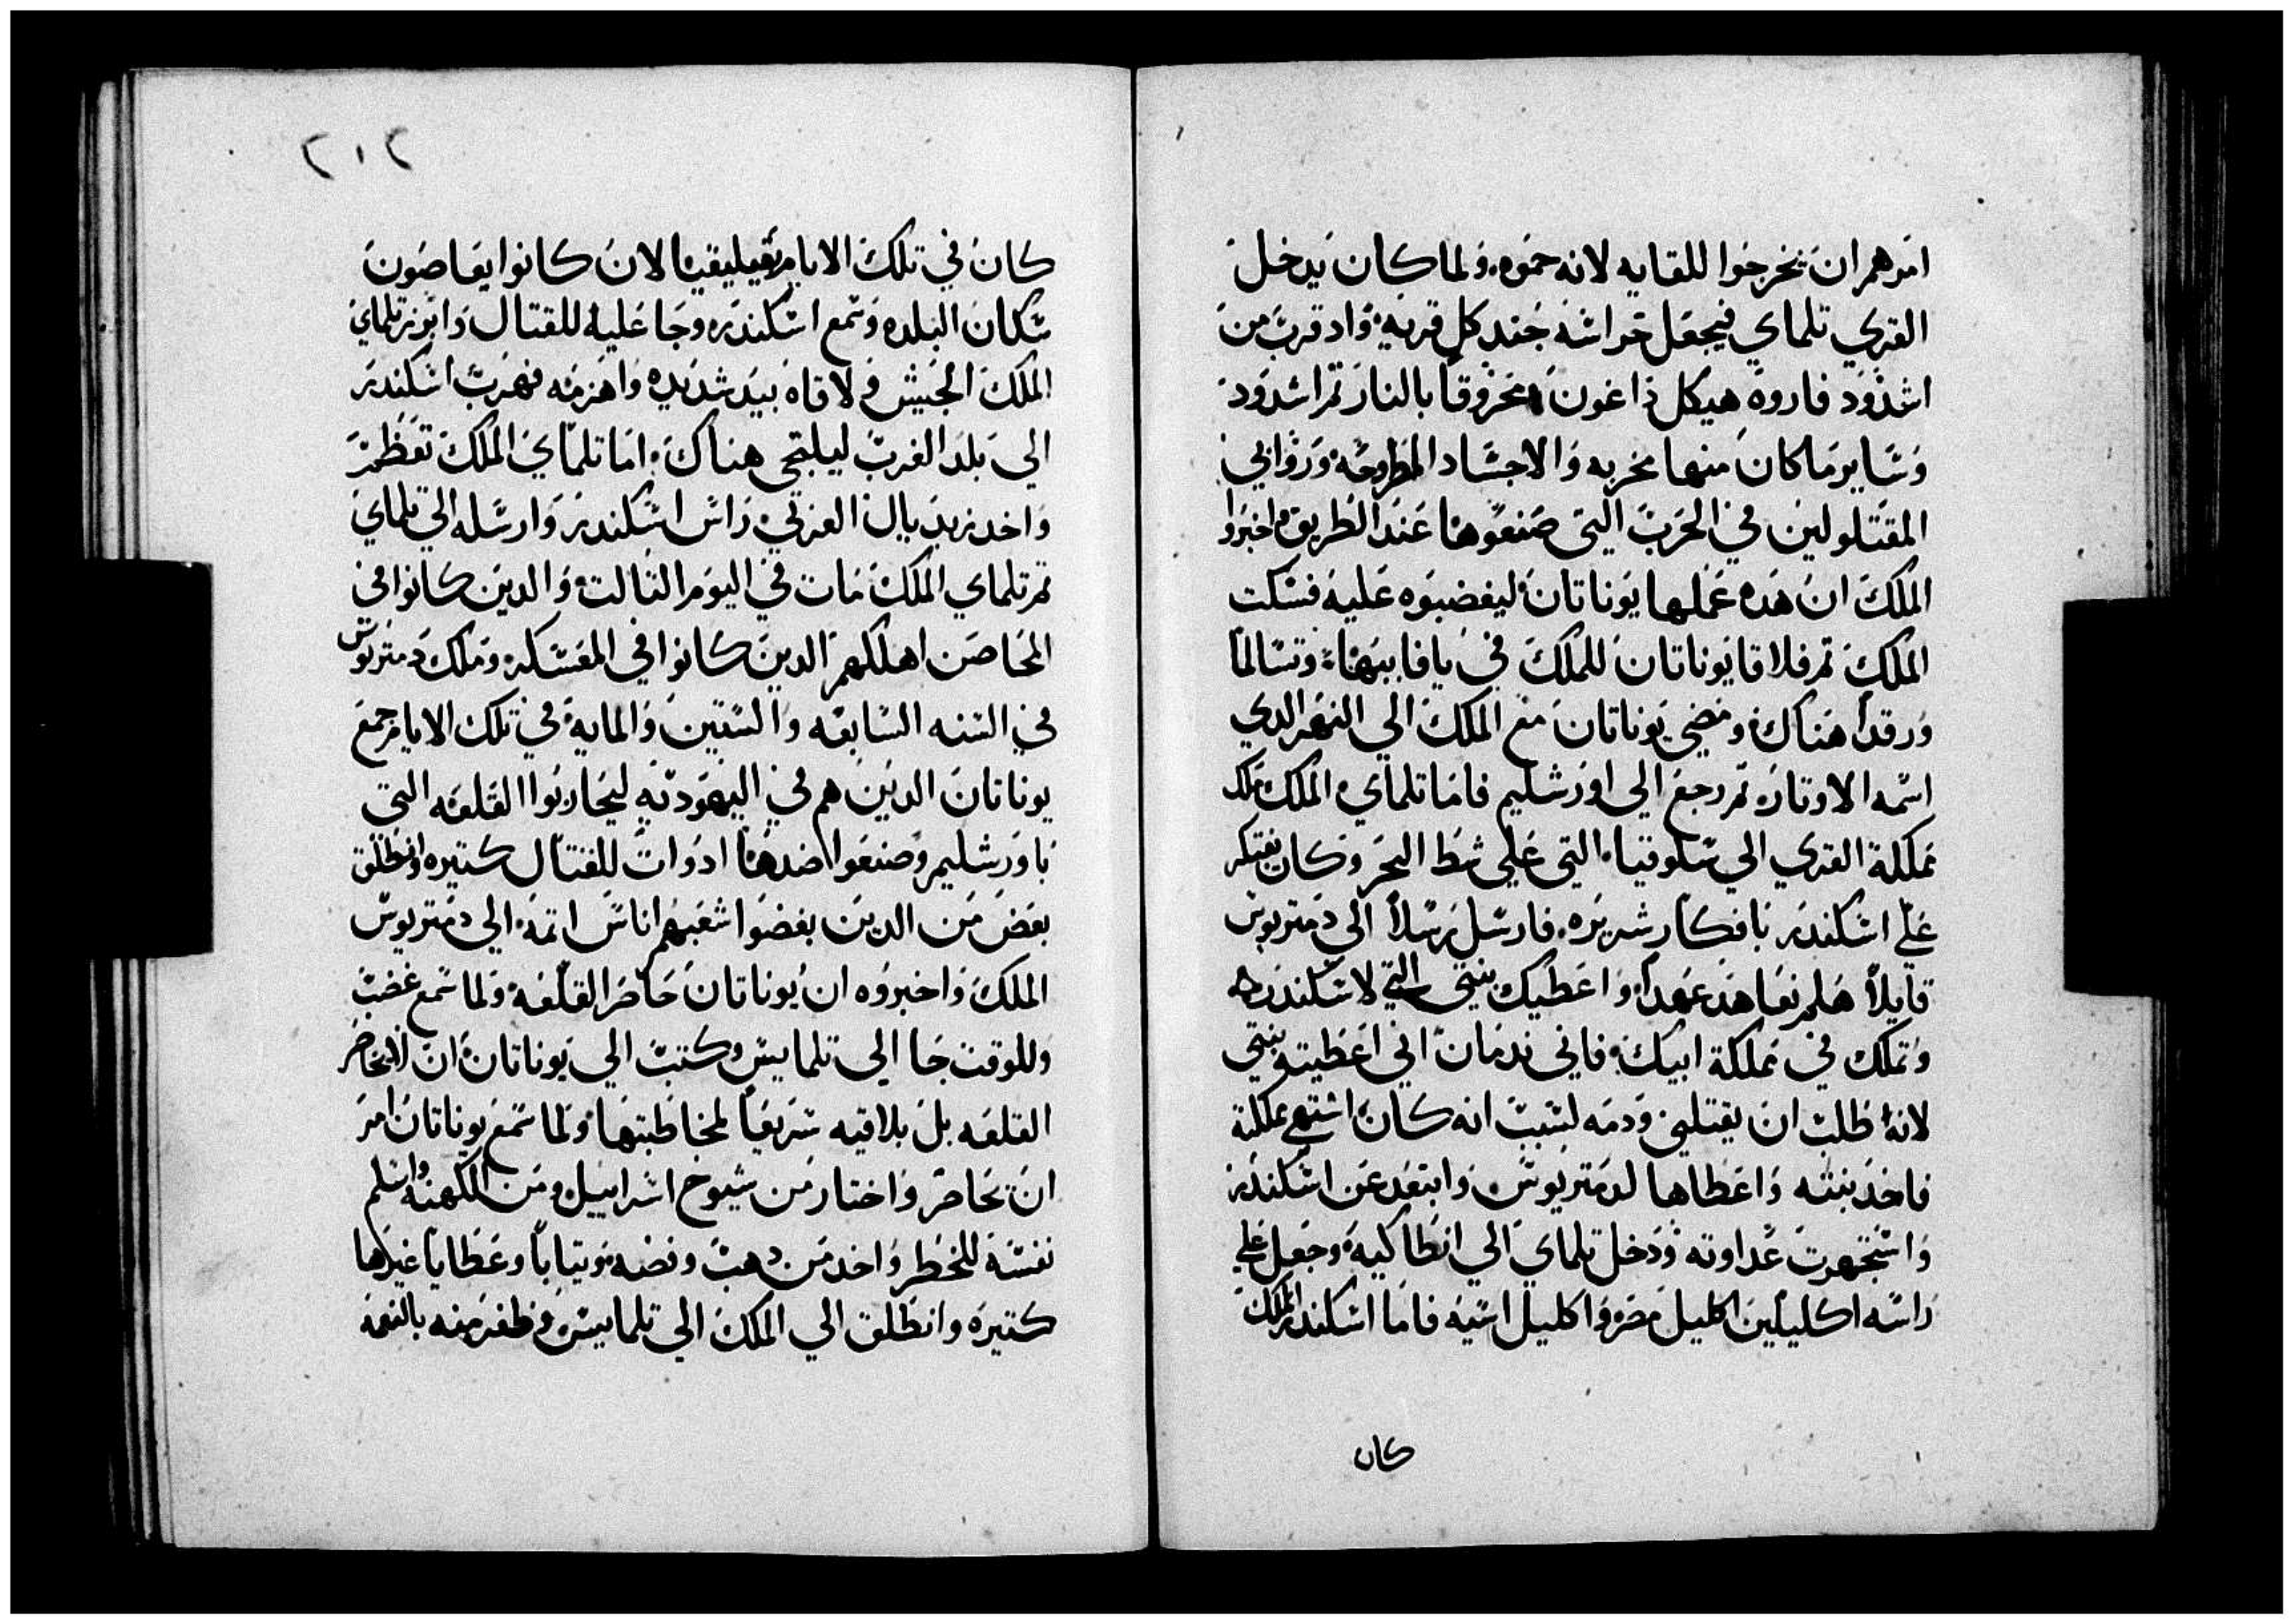 امرهم ان يخرجوا للقايه لانه حموه. ولما كان يدخل
القري تلماي فيجعل حراسه جند كل قريه. واد قرب من
اشدود فاروه هيكل داغون محروقا بالنار تم اشدود
وساير ما كان منها مخربه والاجساد المطروحه وروابي
المقتولين في الحرب التي صنعوها عند الطريق واخبروا
الملك ان هده عملها يوناتان ليغضبوه عليه فسكت
الملك تم فلاقا يوناتان للملك في يافا ببهاء وتسالما
ورقدا هناك ومضي يوناتان مع الملك الي النهر الدي
اسمه الاوتاره تم رجع الي اورشليم فاما تلماي الملك ملك
مملكة القري الي سلوقيا التي علي شط البحر وكان يفتكر
علي اسكندر بافكار شريره. فارسل رسلاً الي دمتريوس
قايلاً هلم نعاهد عهداً واعطيك بنتي التي لاسكندره
وتملك في مملكة ابيك. فاني ندمان اني اعطيته بنتي
لانه طلب ان يقتلني ودمه لسبب انه كان اشتهي مملكة
فاخد بنته واعطاها لدمتريوس وابتعد عن اسكندر
واستجهرت عداوته ودخل تلماي الي انطاكيه وجعل علي
راسه اكليلين اكليل مصر واكليل اسيه فاما اسكندر الملك
كان
٢١٢
كان في تلك الايام بقيليقيا لان كانوا يعاصون
سكان البلده وسمع اسكندره وجا عليه للقتال وابرز تلماي
الملك الجيش ولاقاه بيد شديده واهزمه فهرب اسكندر
الي بلد الغرب ليلتجي هناك. اما تلماي الملك تعظم
واخد زبديال العربي راس اسكندر وارسله الي تلماي
تم تلماي الملك مات في اليوم التالت والدين كانوا في
المحاصن اهلكهم الدين كانوا في المعسكر وملك دمتريوس
في السنه السابعه والستين والمايه في تلك الايام جمع
يوناتان الدين هم في اليهوديه ليحاربوا القلعه التي
باورشليم وصنعوا ضدها ادوات للقتال كتيره وانطلق
بعض من الدين بغضوا شعبهم اناس اتمه الي دمتريوس
الملك واخبروه ان يوناتان حاصر القلعه ولما سمع غضب
وللوقت جا الي تلمايس وكتب الي يوناتان ان لا يحاصر
القلعه بل يلاقيه سريعاً لمخاطبتها ولما سمع يوناتان امر
ان تحاصر واختار من شيوخ اسراييل ومن الكهنه واسلم
نفسه للخطر واخد من دهب وفضه وتياباً وعطايا غيرها
كتيره وانطلق الي الملك الي تلمايس وظفر منه بالنعمه